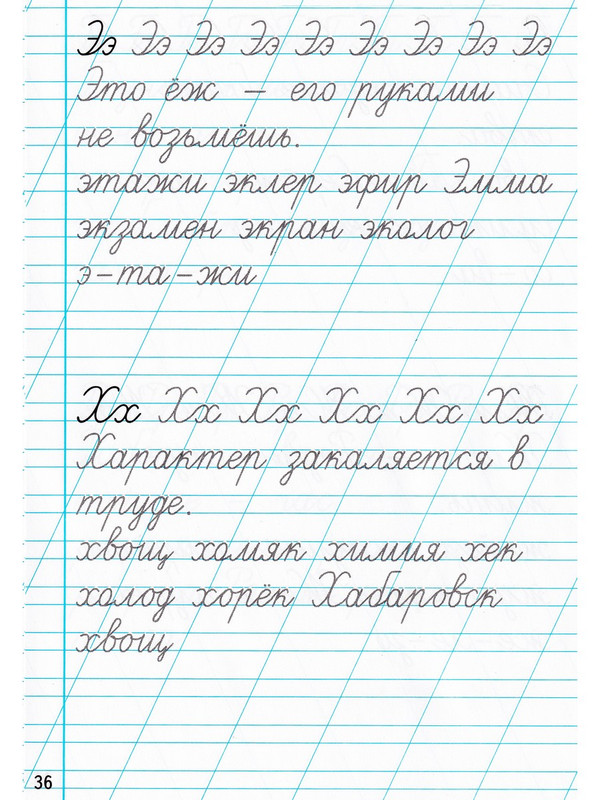 Ээ Ээ Ээ Ээ Ээ Ээ Ээ Ээ Ээ
Это ёж – его руками
не возьмёшь.
этажи эклер эфир Эмма
экзамен экран эколог
э-та-жи
Хх Хх Хх Хх Хх Хх
Характер закаляется в
труде.
хвощ хомяк химия хек
холод хорёк Хабаровск
хвощ
36